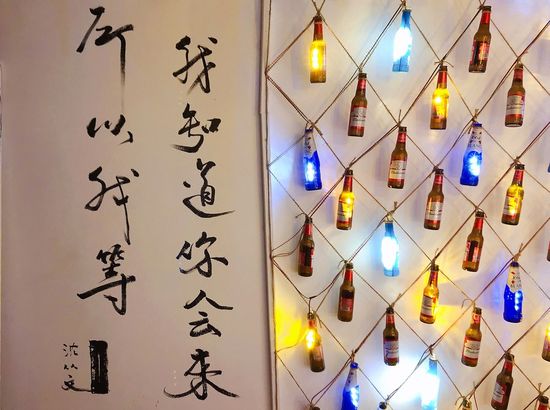 我知道你会来
所以我等
沈从文